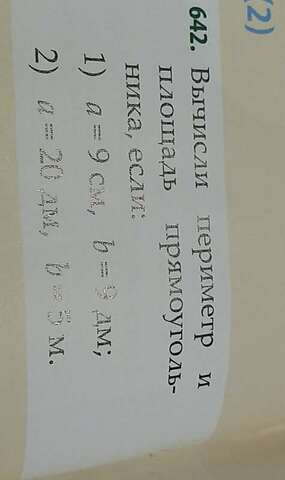 (2)
642. Вычисли периметр и
площадь прямоуголь-
ника, если:
1) a = 9 см, b = 9 дм;
2) a = 20 дм, b = 5 м.